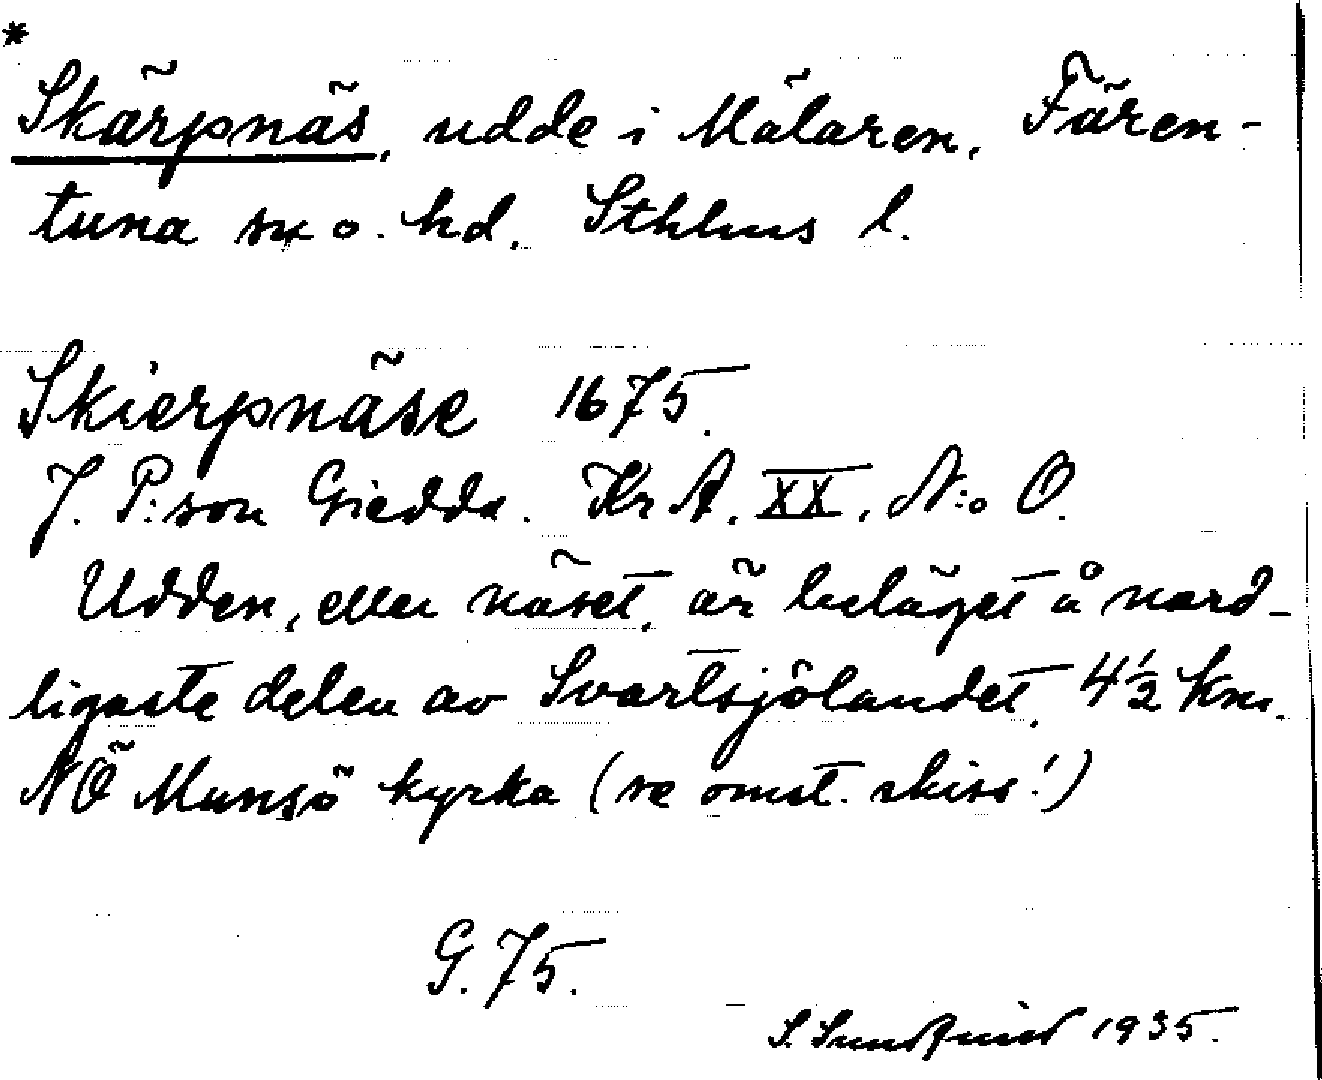 *
Skärpnäs, udde i Mälaren, Fären-
tuna sn o. hd. Sthlms l.
Skierpnäse 1675.
J. P:son Giedda. Kr A. XX, N:o O.
Udden, eller näset, är beläget å nord-
ligaste delen av Svartsjölandet, 4½ km.
NÖ Munsö kyrka (se omst. skiss!)
G. 75.
S. Sundquist 1935.